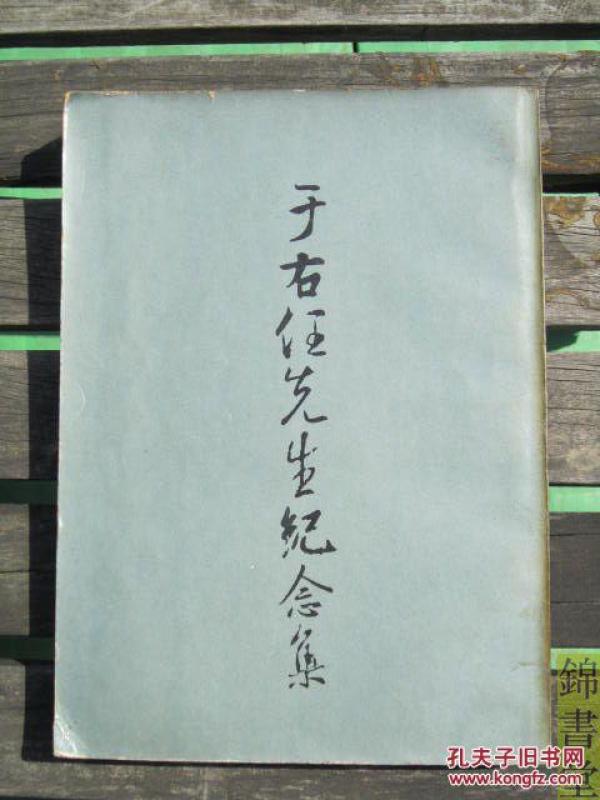 于右任先生紀念集
錦書堂
孔夫子旧书网
www.kongfz.com